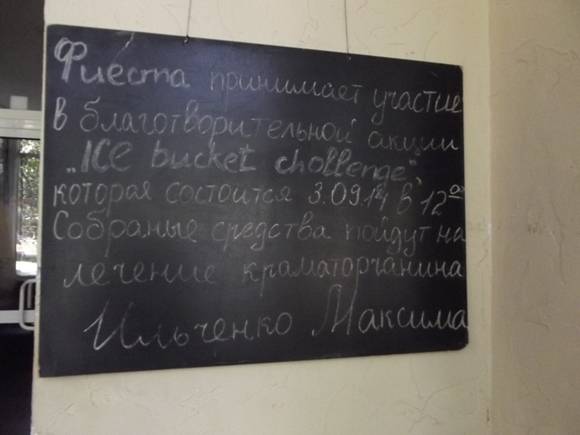 Фиеста принимает участие
в благотворительной акции
„ICE bucket challenge",
которая состоится 3.09.14 в 12⁰⁰
Собраные средства пойдут на
лечение краматорчанина
Ильченко Максима